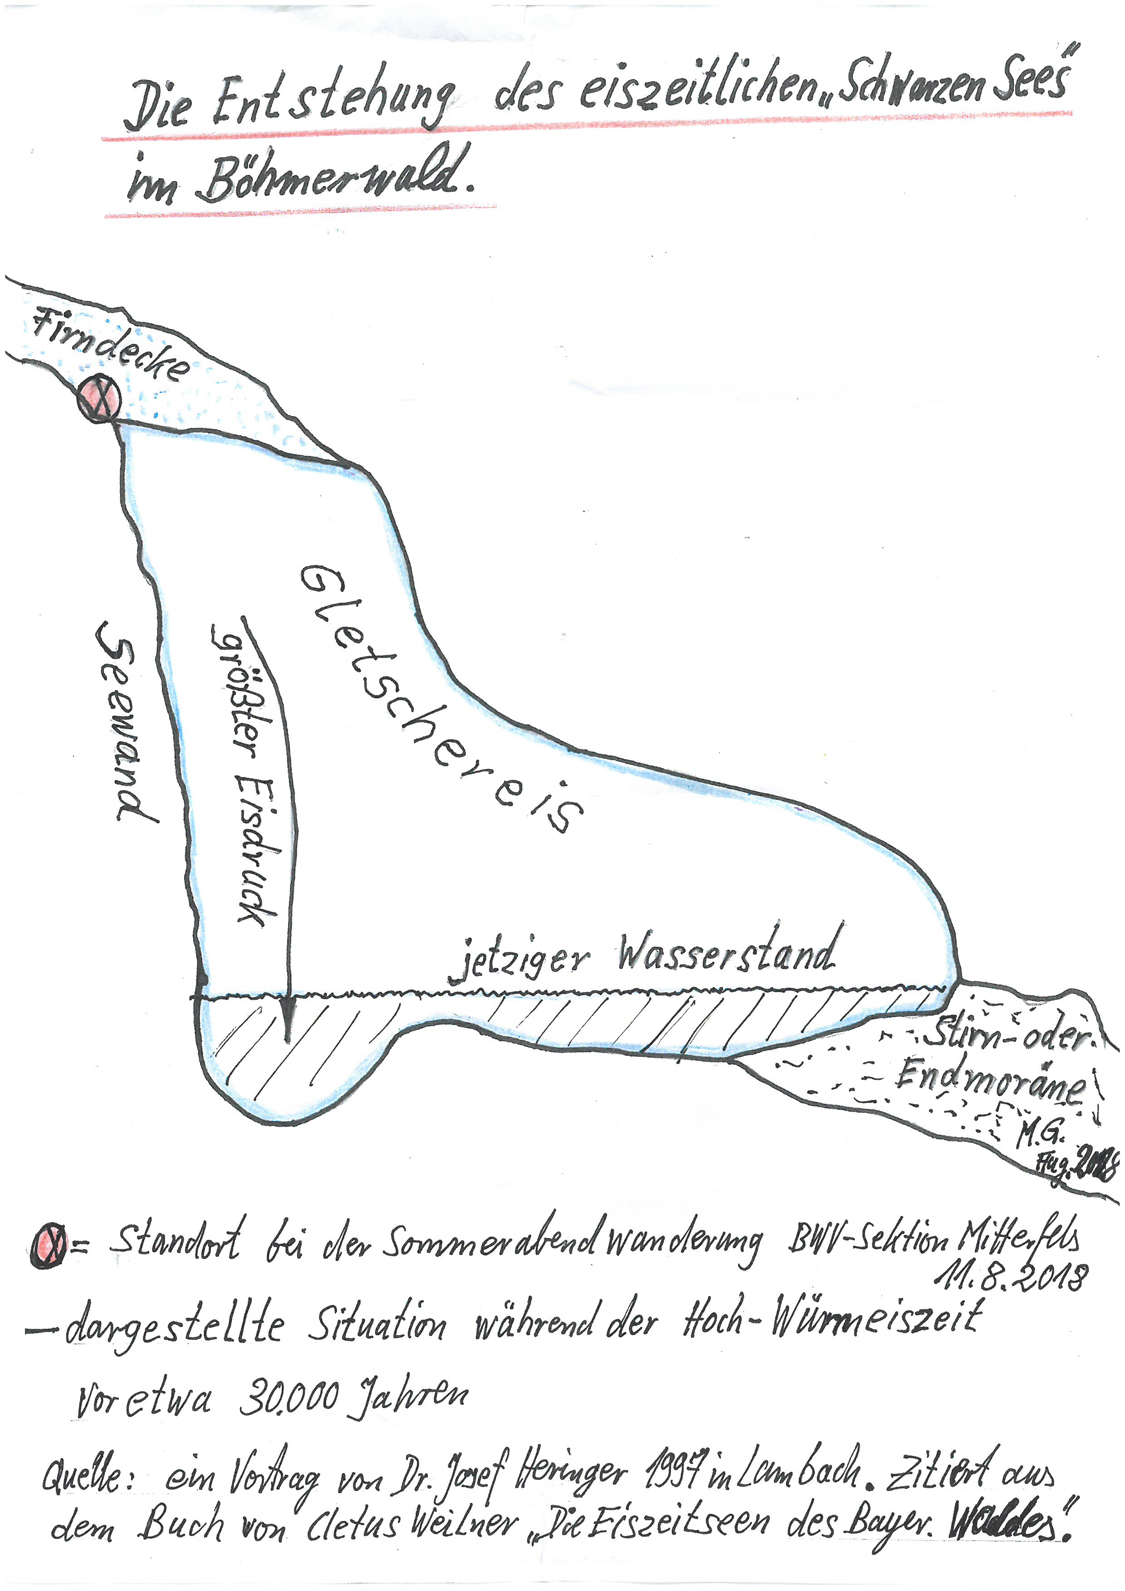 Die Entstehung des eiszeitlichen „Schwarzen Sees"
im Böhmerwald.
Firndecke
X
Gletschereis
größter Eisdruck
Seewand
jetziger Wasserstand
Stirn- oder
Endmoräne
M.G.
Aug. 2018
X = Standort bei der Sommerabendwanderung BWV-Sektion Mitterfels
11.8.2018
— dargestellte Situation während der Hoch-Würmeiszeit
vor etwa 30.000 Jahren
Quelle: ein Vortrag von Dr. Josef Heringer 1997 in Lambach. Zitiert aus
dem Buch von Cletus Weilner „Die Eiszeitseen des Bayer. Waldes".